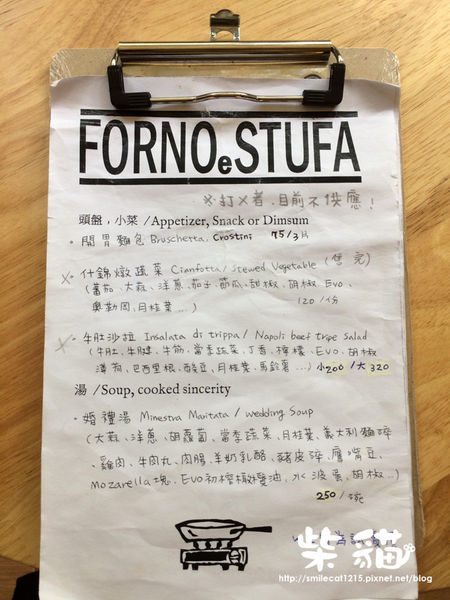 FORNO e STUFA
※打×者、目前不供應!
頭盤,小菜 /Appetizer, Snack or Dimsum
・開胃麵包 Bruschetta, Crostini 75/3片
×・什錦燉蔬菜 Cianfotta/ Stewed Vegetable (售完)
(蕃茄、大蒜、洋蔥、茄子、節瓜、甜椒、胡椒、Evo、
奧勒岡、月桂葉...) 120/份
×・牛肚沙拉 Insalata di trippa/ Napoli beef tripe salad
(牛肚、牛腱、牛筋、當季蔬菜、丁香、檸檬、Evo、胡椒
薄荷、巴西里根、酸豆、月桂葉、馬鈴薯...) 小200/大320
湯 /Soup, cooked sincerity
・婚禮湯 Minestra Maritata / Wedding Soup
(大蒜、洋蔥、胡蘿蔔、當季蔬菜、月桂葉、義大利麵碎
、雞肉、牛肉丸、肉腸、羊奶乳酪、豬皮碎、鷹嘴豆、
Mozarella塊、Evo初榨橄欖油、水波蛋、胡椒...)
250/碗
柴貓
http://smilecat1215.pixnet.net/blog